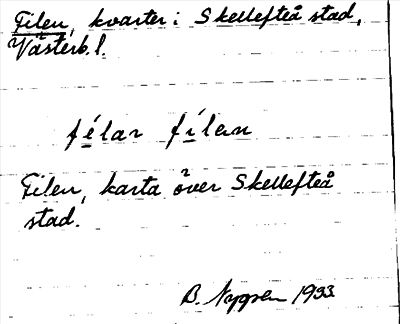 Filen, kvarter i Skellefteå stad,
Västerb. l.
félar fílen
Filen, karta över Skellefteå
stad.
B. Nygren 1933